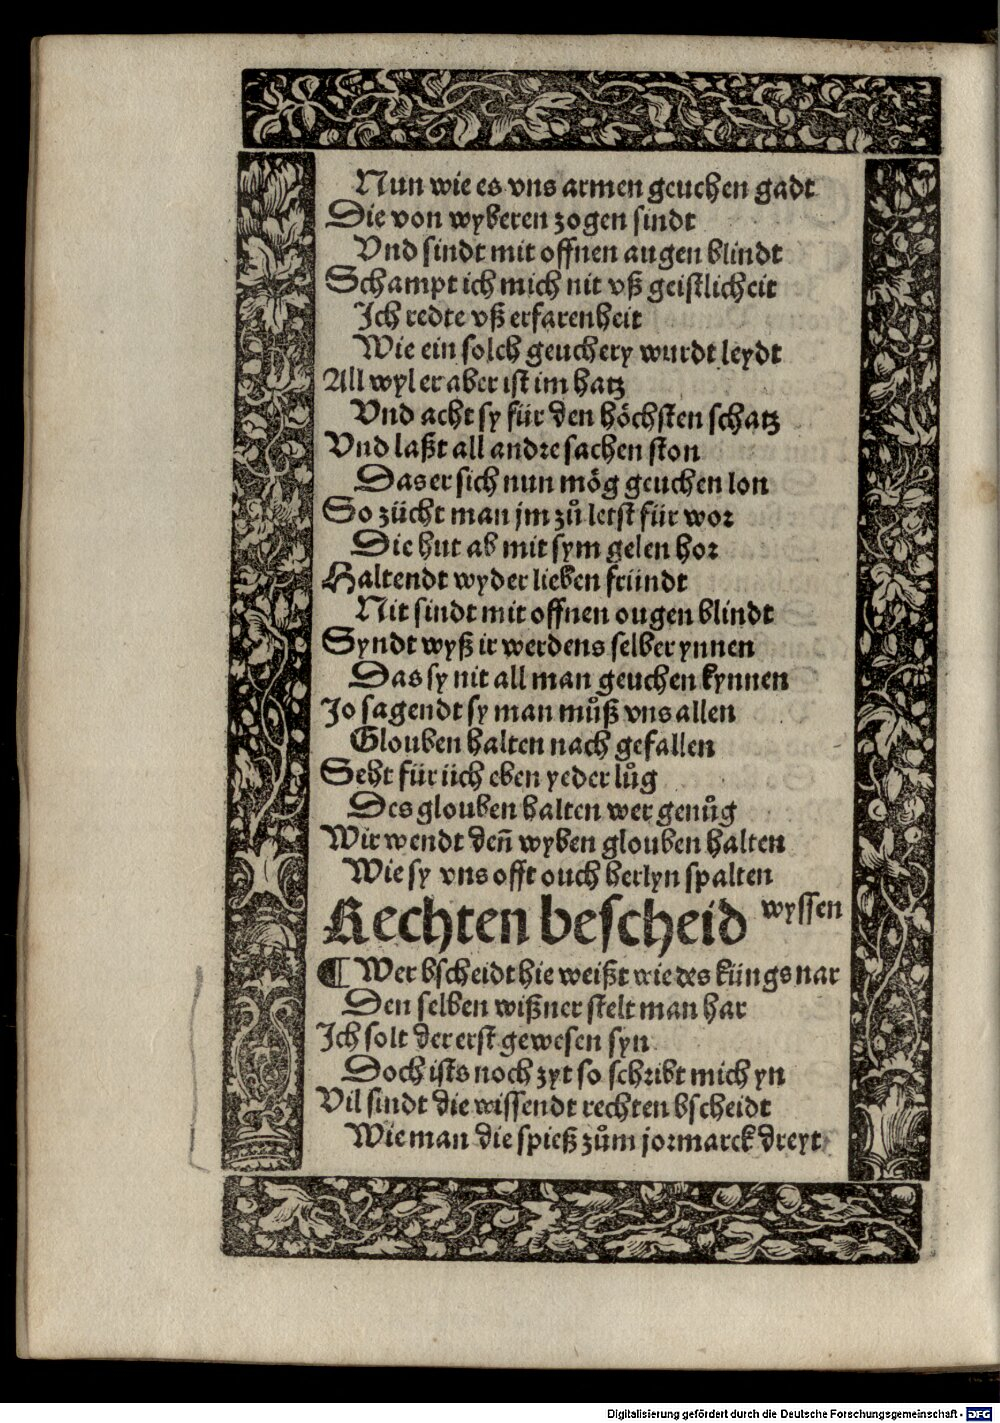 Nun wie es vns armen geuchen gadt
Die von wyberen zogen sindt
Vnd sindt mit offnen augen blindt
Schampt ich mich nit vß geistlicheit
Ich redte vß erfarenheit
Wie ein solch geuchery wurdt leydt
All wyl er aber ist im hatz
Vnd acht sy für den höchsten schatz
Vnd laßt all andre sachen ston
Das er sich nun mög geuchen lon
So zücht man jm zů letst für wor
Die hut ab mit sym gelen hor
Haltendt wyder lieben fründt
Nit sindt mit offnen ougen blindt
Syndt wyß ir werdens selber ynnen
Das sy nit all man geuchen kynnen
Jo sagendt sy man můß vns allen
Glouben halten nach gefallen
Seht für üch eben yeder lůg
Des glouben halten wer genůg
Wir wendt den̄ wyben glouben halten
Wie sy vns offt ouch herlyn spalten
Rechten bescheid wyssen
¶ Wer bscheidt hie weißt wie des küngs nar
Den selben wißner stelt man har
Ich solt der erst gewesen syn
Doch ists noch zyt so schribt mich yn
Vil sindt die wissendt rechten bscheidt
Wie man die spieß zům jormarck dreyt
Digitalisierung gefördert durch die Deutsche Forschungsgemeinschaft - DFG